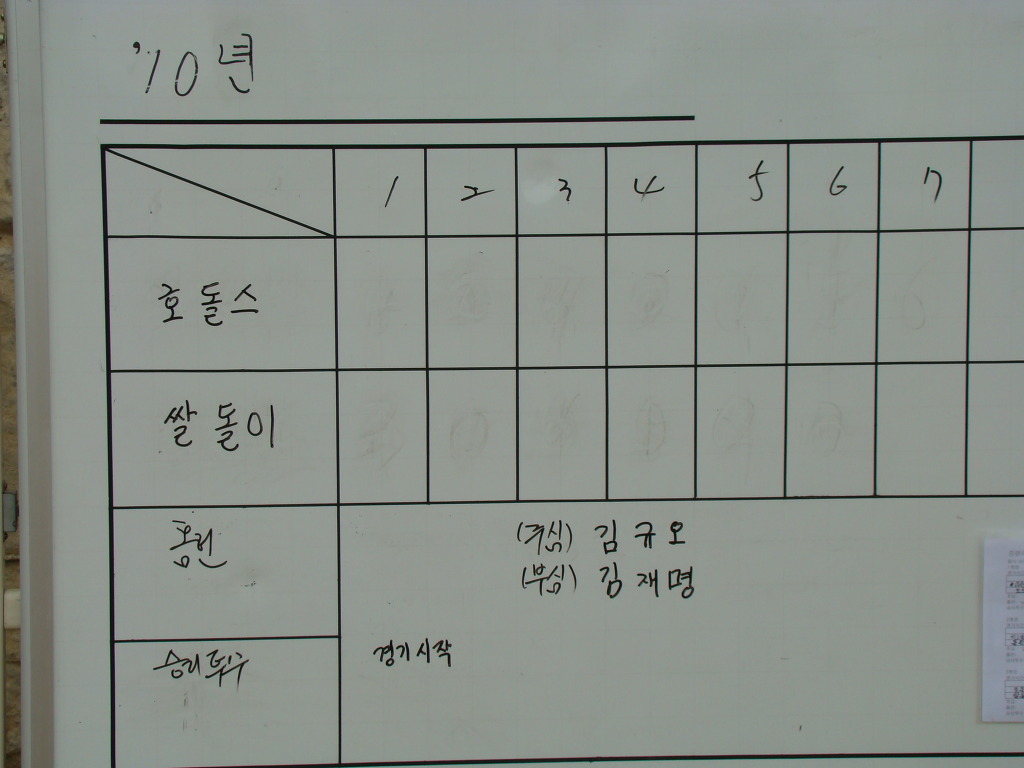 '10년
1 2 3 4 5 6 7
호돌스
쌀돌이
홈런
(주심) 김규오
(부심) 김재명
승리투수
경기시작